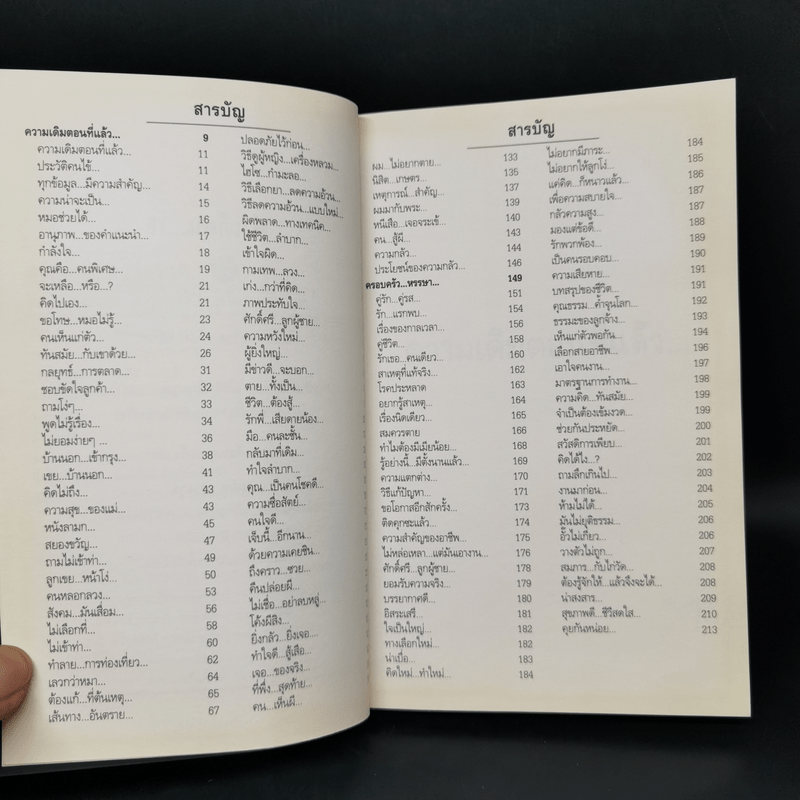 สารบัญ
ความเดิมตอนที่แล้ว... 9
ความเดิมตอนที่แล้ว... 11
ประวัติคนไข้... 11
ทุกข้อมูล...มีความสำคัญ... 14
ความน่าจะเป็น... 15
หมอช่วยได้... 16
อานุภาพ...ของคำแนะนำ... 17
กำลังใจ... 18
คุณคือ...คนพิเศษ... 19
จะเหลือ...หรือ...? 21
คิดไปเอง... 21
ขอโทษ...หมอไม่รู้... 23
คนเห็นแก่ตัว... 24
ทันสมัย...กับเขาด้วย... 26
กลยุทธ์...การตลาด... 31
ชอบขัดใจลูกค้า... 32
ถามโง่ๆ... 33
พูดไม่รู้เรื่อง... 34
ไม่ยอมง่ายๆ ... 36
บ้านนอก...เข้ากรุง... 38
เขย...บ้านนอก... 41
คิดไม่ถึง... 43
ความสุข...ของแม่... 43
หนังลามก... 45
สยองขวัญ... 47
ถามไม่เข้าท่า... 49
ลูกเขย...หน้าโง่... 50
คนหลอกลวง... 53
สังคม...มันเสื่อม... 56
ไม่เลือกที่... 58
ไม่เข้าท่า... 60
ทำลาย...การท่องเที่ยว... 62
เลวกว่าหมา... 64
ต้องแก้...ที่ต้นเหตุ... 65
เส้นทาง...อันตราย... 67
ปลอดภัยไว้ก่อน...
วิธีดูผู้หญิง...เครื่องหลวม...
ไฮโซ...กำมะลอ...
วิธีเลือกยา...ลดความอ้วน...
วิธีลดความอ้วน...แบบใหม่...
ผิดพลาด...ทางเทคนิค...
ใช้ชีวิต...ลำบาก...
เข้าใจผิด...
กามเทพ...ลวง...
เก่ง...กว่าที่คิด...
ภาพประทับใจ...
ศักดิ์ศรี...ลูกผู้ชาย...
ความหวังใหม่...
ผู้ยิ่งใหญ่...
มีข่าวดี...จะบอก...
ตาย...ทั้งเป็น...
ชีวิต...ต้องสู้...
รักพี่...เสียดายน้อง...
มือ...คนละชั้น...
กลับมาที่เดิม...
ทำใจลำบาก...
คุณ...เป็นคนโชคดี...
ความซื่อสัตย์...
คนใจดี...
เจ็บนี้...อีกนาน...
ด้วยความเคยชิน...
ถึงคราว...ซวย...
คืนปล่อยผี...
ไม่เชื่อ...อย่าลบหลู่...
โค้งผีสิง...
ยิ่งกลัว...ยิ่งเจอ...
ทำใจดี...สู้เสือ...
เจอ...ของจริง...
ที่พึ่ง...สุดท้าย...
คน...เห็นผี...
สารบัญ
ผม...ไม่อยากตาย... 133
นิสิต...เกษตร... 135
เหตุการณ์...สำคัญ... 137
ผมมากับพระ... 139
หนีเสือ...เจอจระเข้... 140
คน...สู้ผี... 143
ความกลัว... 144
ประโยชน์ของความกลัว... 146
ครอบครัว...หรรษา... 149
คู่รัก...คู่รส... 151
รัก...แรกพบ... 154
เรื่องของกาลเวลา... 156
คู่ชีวิต... 158
รักเธอ...คนเดียว... 160
สาเหตุที่แท้จริง... 162
โรคประหลาด 163
อยากรู้สาเหตุ... 164
เรื่องนิดเดียว... 165
สมควรตาย 166
ทำไมต้องมีเมียน้อย... 168
รู้อย่างนี้...มีตั้งนานแล้ว... 169
ความแตกต่าง... 170
วิธีแก้ปัญหา... 171
ขอโอกาสอีกสักครั้ง... 173
ติดคุกซะแล้ว... 174
ความสำคัญของอาชีพ... 175
ไม่หล่อเหลา...แต่มันเอางาน... 176
ศักดิ์ศรี...ลูกผู้ชาย... 178
ยอมรับความจริง... 179
บรรยากาศดี... 180
อิสระเสรี... 181
ใจเป็นใหญ่... 182
ทางเลือกใหม่... 182
น่าเบื่อ... 183
คิดใหม่...ทำใหม่... 184
ไม่อยากมีภาระ... 184
ไม่อยากให้ลูกโง่... 185
แค่คิด...ก็หนาวแล้ว... 186
เพื่อความสบายใจ... 187
กลัวความสูง... 187
มองแต่ข้อดี... 188
รักพวกพ้อง... 189
เป็นคนรอบคอบ... 190
ความเสียหาย... 191
บทสรุปของชีวิต... 191
คุณธรรม...ค้ำจุนโลก... 192
ธรรมะของลูกจ้าง... 193
เห็นแก่ตัวพอกัน... 194
เลือกสายอาชีพ... 196
เอาใจคนงาน... 197
มาตรฐานการทำงาน... 198
ความคิด...ทันสมัย... 199
จำเป็นต้องเข้มงวด... 199
ช่วยกันประหยัด... 200
สวัสดิการเพียบ... 201
คิดได้ไง...? 202
ถามลึกเกินไป... 203
งานมาก่อน... 204
ห้ามไม่ได้... 205
มันไม่ยุติธรรม... 206
อั๊วไม่เกี่ยว... 206
วางตัวไม่ถูก... 207
สมภาร...กับไก่วัด... 208
ต้องรู้จักให้...แล้วจึงจะได้... 208
น่าสงสาร... 209
สุขภาพดี...ชีวิตสดใส... 210
คุยกันหน่อย... 213